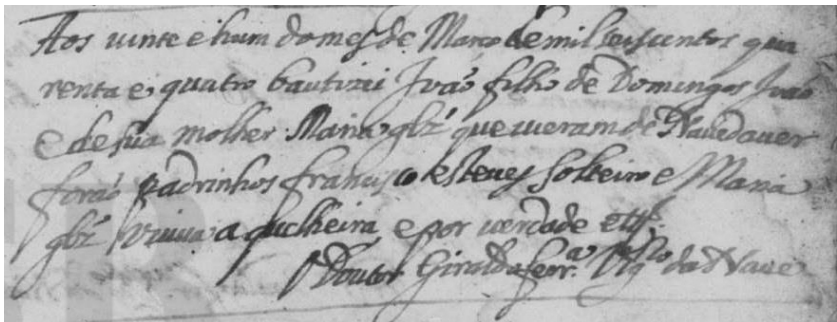 Aos uinte e hum do mes de Março de mil seis sentos qua
renta e quatro bautizei João filho de Domingos João
e de sua molher Maria glz' que uieram de Nauedauer
forão padrinhos francisco esteues solteiro e Maria
glz' viuua a e por uerdade etc.
Doutor Giraldo ferr.ª da Naue